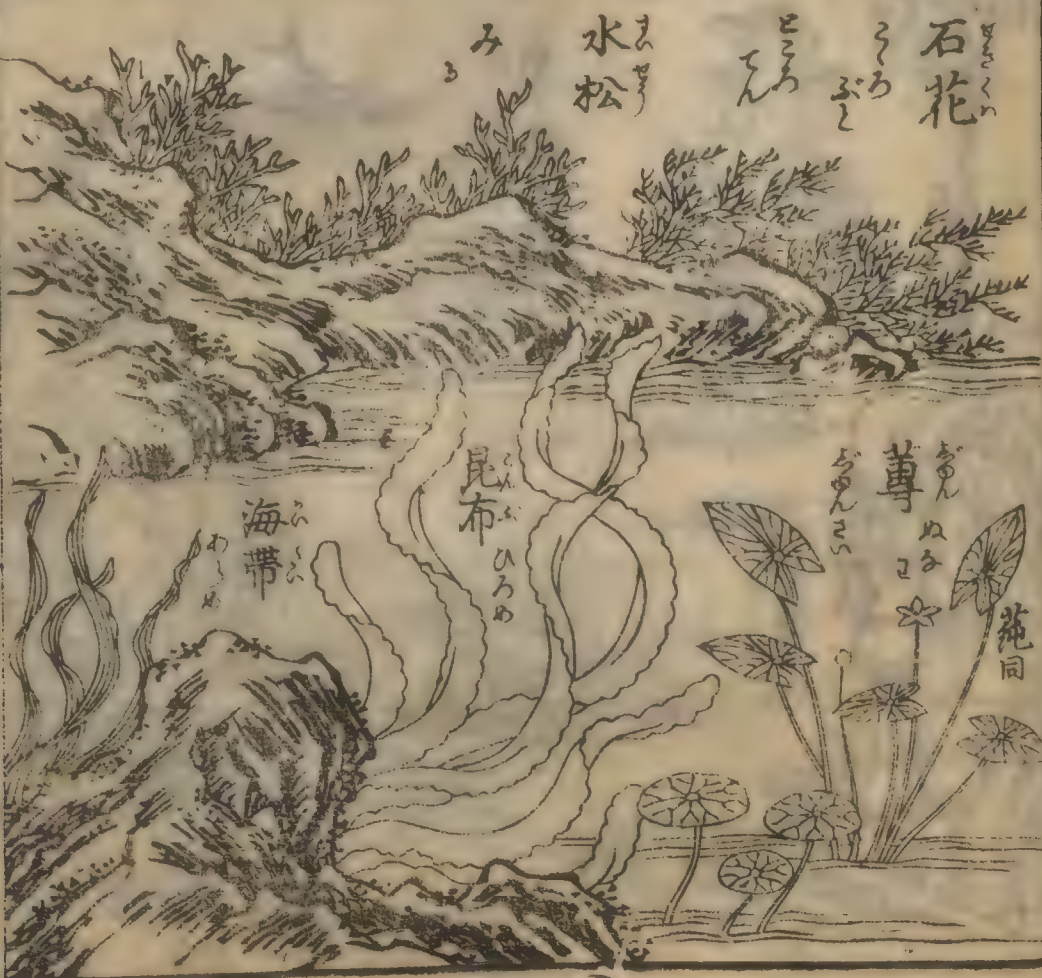 石花
せきくわ
こゝろ
ぶと
ところ
てん
水松
すいせう
みる
蓴
じゆん
ぬなわ
じゆんさい
蒓同
昆布
こんぶ
ひろめ
海帯
かいたい
あらめ